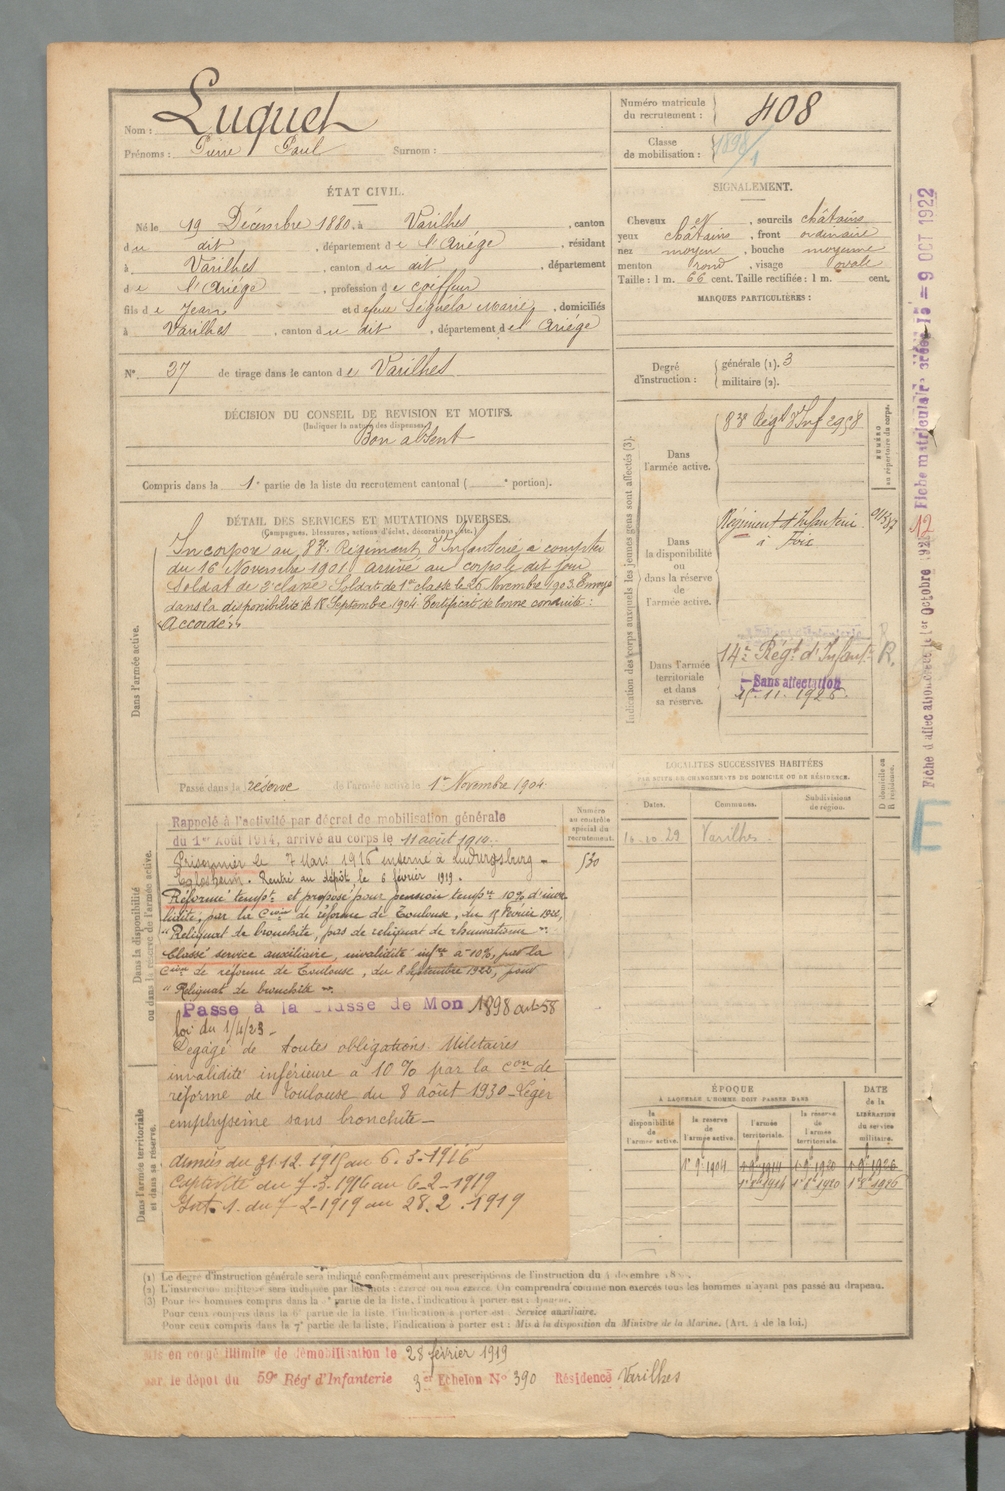 Nom : Luquet
Prénoms : Pierre Paul Surnom :
Numéro matricule
du recrutement : 408
Classe
de mobilisation : 1898/1
ÉTAT CIVIL.
Né le 19 Décembre 1880, à Varilhes, canton
du dit, département de l'Ariége, résidant
à Varilhes, canton du dit, département
de l'Ariége, profession de coiffeur
fils de Jean et de feue Séguéla Marie, domiciliés
à Varilhes, canton du dit, département de l'Ariége
N° 37 de tirage dans le canton de Varilhes
SIGNALEMENT.
Cheveux et, sourcils châtains
yeux châtains, front ordinaire
nez moyen, bouche moyenne
menton rond, visage ovale
Taille : 1 m. 66 cent. Taille rectifiée : 1 m. cent.
MARQUES PARTICULIÈRES :
Degré
d'instruction :
générale (1). 3
militaire (2).
DÉCISION DU CONSEIL DE REVISION ET MOTIFS.
(Indiquer la nature des dispenses)
Bon absent
Compris dans la 1e partie de la liste du recrutement cantonal ( e portion).
DÉTAIL DES SERVICES ET MUTATIONS DIVERSES.
(Campagnes, blessures, actions d'éclat, décorations, etc.)
Dans l'armée active.
Incorporé au 83e Régiment d'Infanterie à compter
du 16 Novembre 1901, arrivé au corps le dit jour
Soldat de 2e classe Soldat de 1re classe le 26 Novembre 1903. Envoyé
dans la disponibilité le 18 Septembre 1904 Certificat de bonne conduite :
"Accordé"
Passé dans la réserve de l'armée active le 1er Novembre 1904
Indication des corps auxquels les jeunes gens sont affectés (3).
NUMÉRO
au répertoire du corps.
Dans
l'armée active.
83e Régt d'Inf 2958
Dans
la disponibilité
ou
dans la réserve
de
l'armée active.
Régiment d'Infanterie
à Foix
Dans l'armée
territoriale
et dans
sa réserve.
14e Régt d'Infant. R.
Sans affectation
15.11.1926
Dans la disponibilité
ou dans la réserve de l'armée active.
Numéro
au contrôle
spécial du
recrutement.
530
Rappelé à l'activité par décret de mobilisation générale
du 1er Août 1914, arrivé au corps le 11 août 1914.
Prisonnier le 7 Mars 1916 interné à Ludwigsburg-
Eglosheim. Rentré au dépôt le 6 février 1919.
Réformé tempre et proposé pour pension tempre 10% d'inva-
lidité, par la Cion de réforme de Toulouse, du Février 1920,
"Reliquat de bronchite, pas de reliquat de rhumatisme"
Classé service auxiliaire, invalidité infre à 10%, par la
Cion de réforme de Toulouse, du 8 Septembre 1925, pour
"Reliquat de bronchite".
Passé à la Classe de Mon 1898 art 58
loi du 1/4/23-
Dégagé de toutes obligations Militaires
invalidité inférieure à 10% par la Con de
réforme de Toulouse du 8 août 1930 - Léger
emphysème sans bronchite -
Dans l'armée territoriale
et dans sa réserve.
Armées du 31.12.1915 au 6.3.1916
Captivité du 7-3.1916 au 6-2-1919
Int. 1. du 7-2-1919 au 28.2.1919
LOCALITÉS SUCCESSIVES HABITÉES
PAR SUITE DE CHANGEMENTS DE DOMICILE OU DE RÉSIDENCE.
Dates. Communes. Subdivisions
de région.
D domicile ou
R résidence.
14.10.29 Varilhes
ÉPOQUE
À LAQUELLE L'HOMME DOIT PASSER DANS
DATE
de la
LIBÉRATION
du service
militaire.
la
disponibilité
de
l'armée active.
la réserve
de
l'armée active.
l'armée
territoriale.
la réserve
de
l'armée
territoriale.
1er 9bre 1904 1er 9bre 1914 1er 9bre 1920 1er 9bre 1926
1er 8bre 1914 1er 8bre 1920 1er 8bre 1926
(1) Le degré d'instruction générale sera indiqué conformément aux prescriptions de l'instruction du 4 décembre
(2) L'instruction militaire sera indiquée par les mots : exercé ou non exercé. On comprendra comme non exercés tous les hommes n'ayant pas passé au drapeau.
(3) Pour les hommes compris dans la partie de la liste, l'indication à porter est :
Pour ceux compris dans la 6e partie de la liste, l'indication à porter est : Service auxiliaire.
Pour ceux compris dans la 7e partie de la liste, l'indication à porter est : Mis à la disposition du Ministre de la Marine. (Art. 4 de la loi.)
Mis en congé illimité de démobilisation le 28 février 1919
par le dépôt du 59e Régt d'Infanterie 3e Echelon N° 390 Résidence Varilhes
E